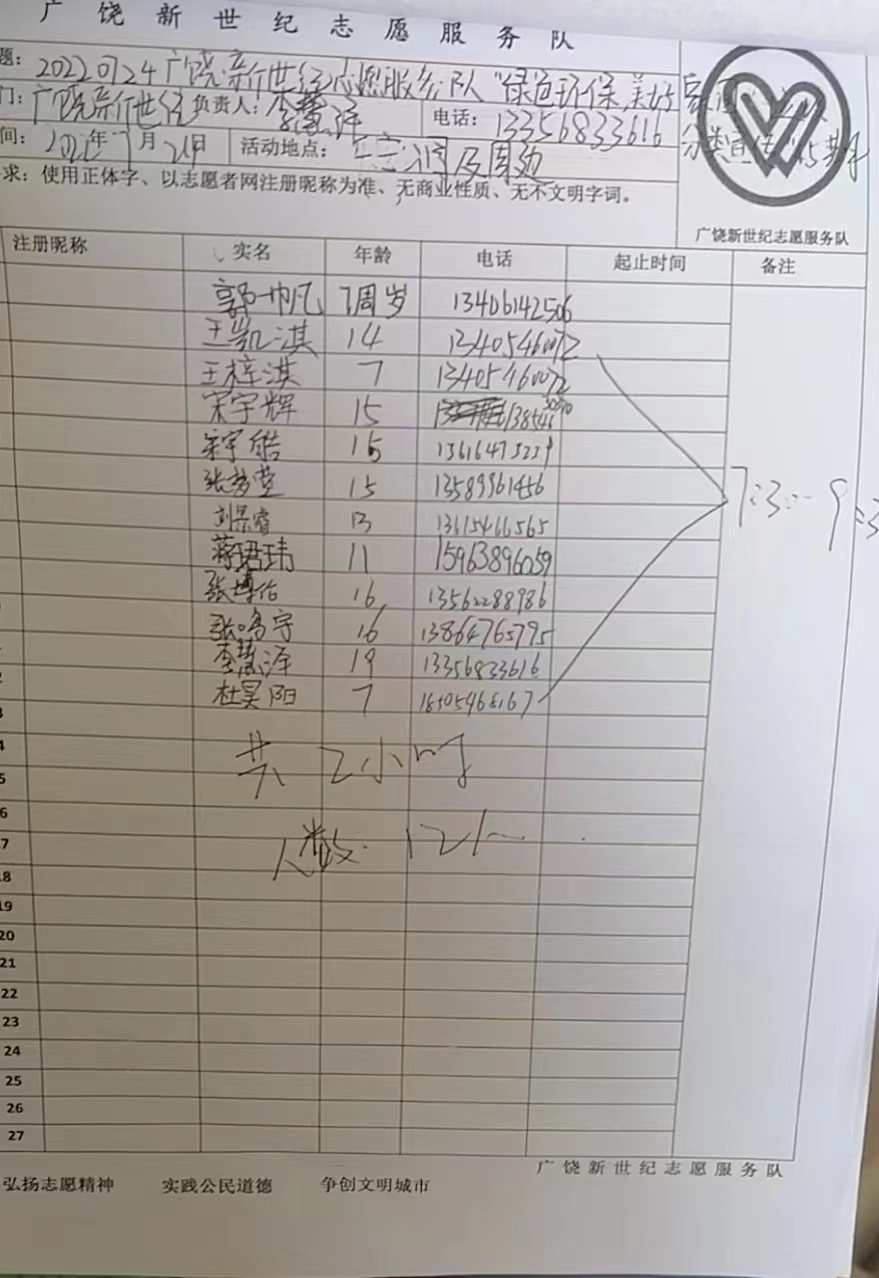 广饶新世纪志愿服务队
题: 20220724广饶新世纪志愿服务队"绿色环保,美好家园
分类宣传
门: 广饶新世纪 负责人: 李慧泽 电话: 13356833616
间: 2022年7月24日 活动地点: 及周边
求: 使用正体字、以志愿者网注册昵称为准、无商业性质、无不文明字词。
广饶新世纪志愿服务队
注册昵称 实名 年龄 电话 起止时间 备注
郭一帆 7周岁 13406142506
王凯淇 14 13405460072
王梓淇 7 13405460072
宋宇辉 15
宋宇皓 15 13616473229
张梦莹 15 13589961456
刘昱睿 13 13615466565
蒋珺玮 11 15963896059
7:30-9:3
张博佑 16 13562288986
张鸣宇 16 13864765795
李慧泽 19 13356833616
杜昊阳 7
共2小时
人数: 12人
4
5
6
7
18
19
20
21
22
23
24
25
26
27
广饶新世纪志愿服务队
弘扬志愿精神 实践公民道德 争创文明城市